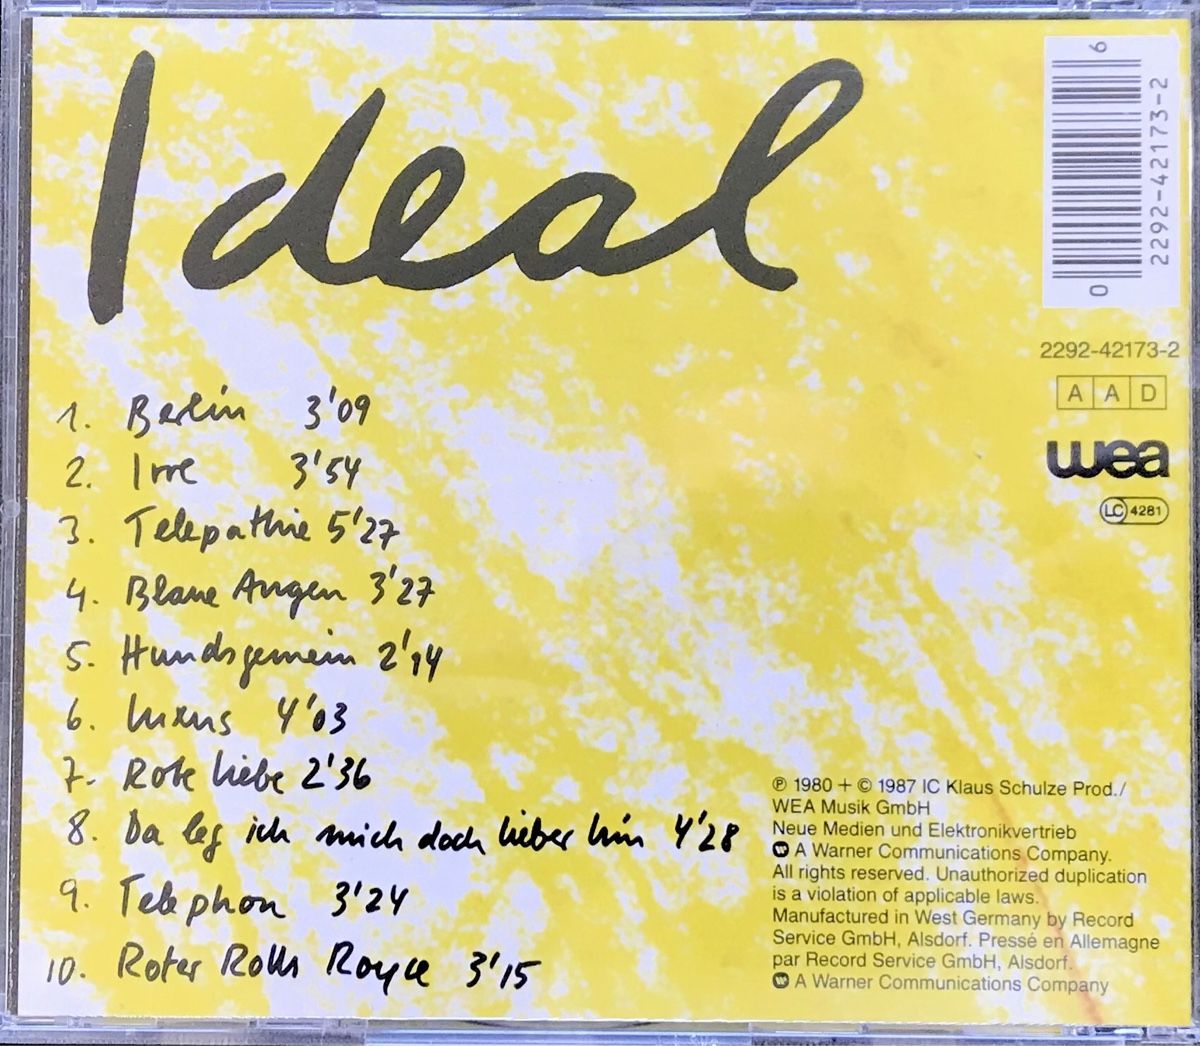 Ideal
6
2292-42173-2
0
2292-42173-2
A A D
wea
LC 4281
1. Berlin 3'09
2. Irre 3'54
3. Telepathie 5'27
4. Blaue Augen 3'27
5. Hundsgemein 2'14
6. Luxus 4'03
7. Rote Liebe 2'36
8. Da leg ich mich doch lieber hin 4'28
9. Telephon 3'24
10. Roter Rolls Royce 3'15
℗ 1980 + © 1987 IC Klaus Schulze Prod./
WEA Musik GmbH
Neue Medien und Elektronikvertrieb
A Warner Communications Company.
All rights reserved. Unauthorized duplication
is a violation of applicable laws.
Manufactured in West Germany by Record
Service GmbH, Alsdorf. Pressé en Allemagne
par Record Service GmbH, Alsdorf.
A Warner Communications Company